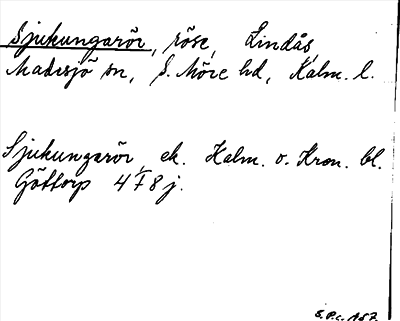 Sjukungarör, röse, Lindås,
Madesjö sn, S. Möre hd, Kalm. l.
Sjukungarör, ek. Kalm. o. Kron. bl.
Göttorp 4 I 8 j.